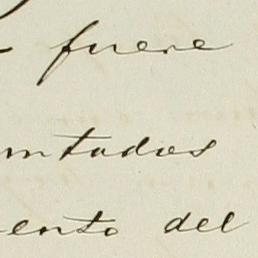 fuere
mtados
ento del